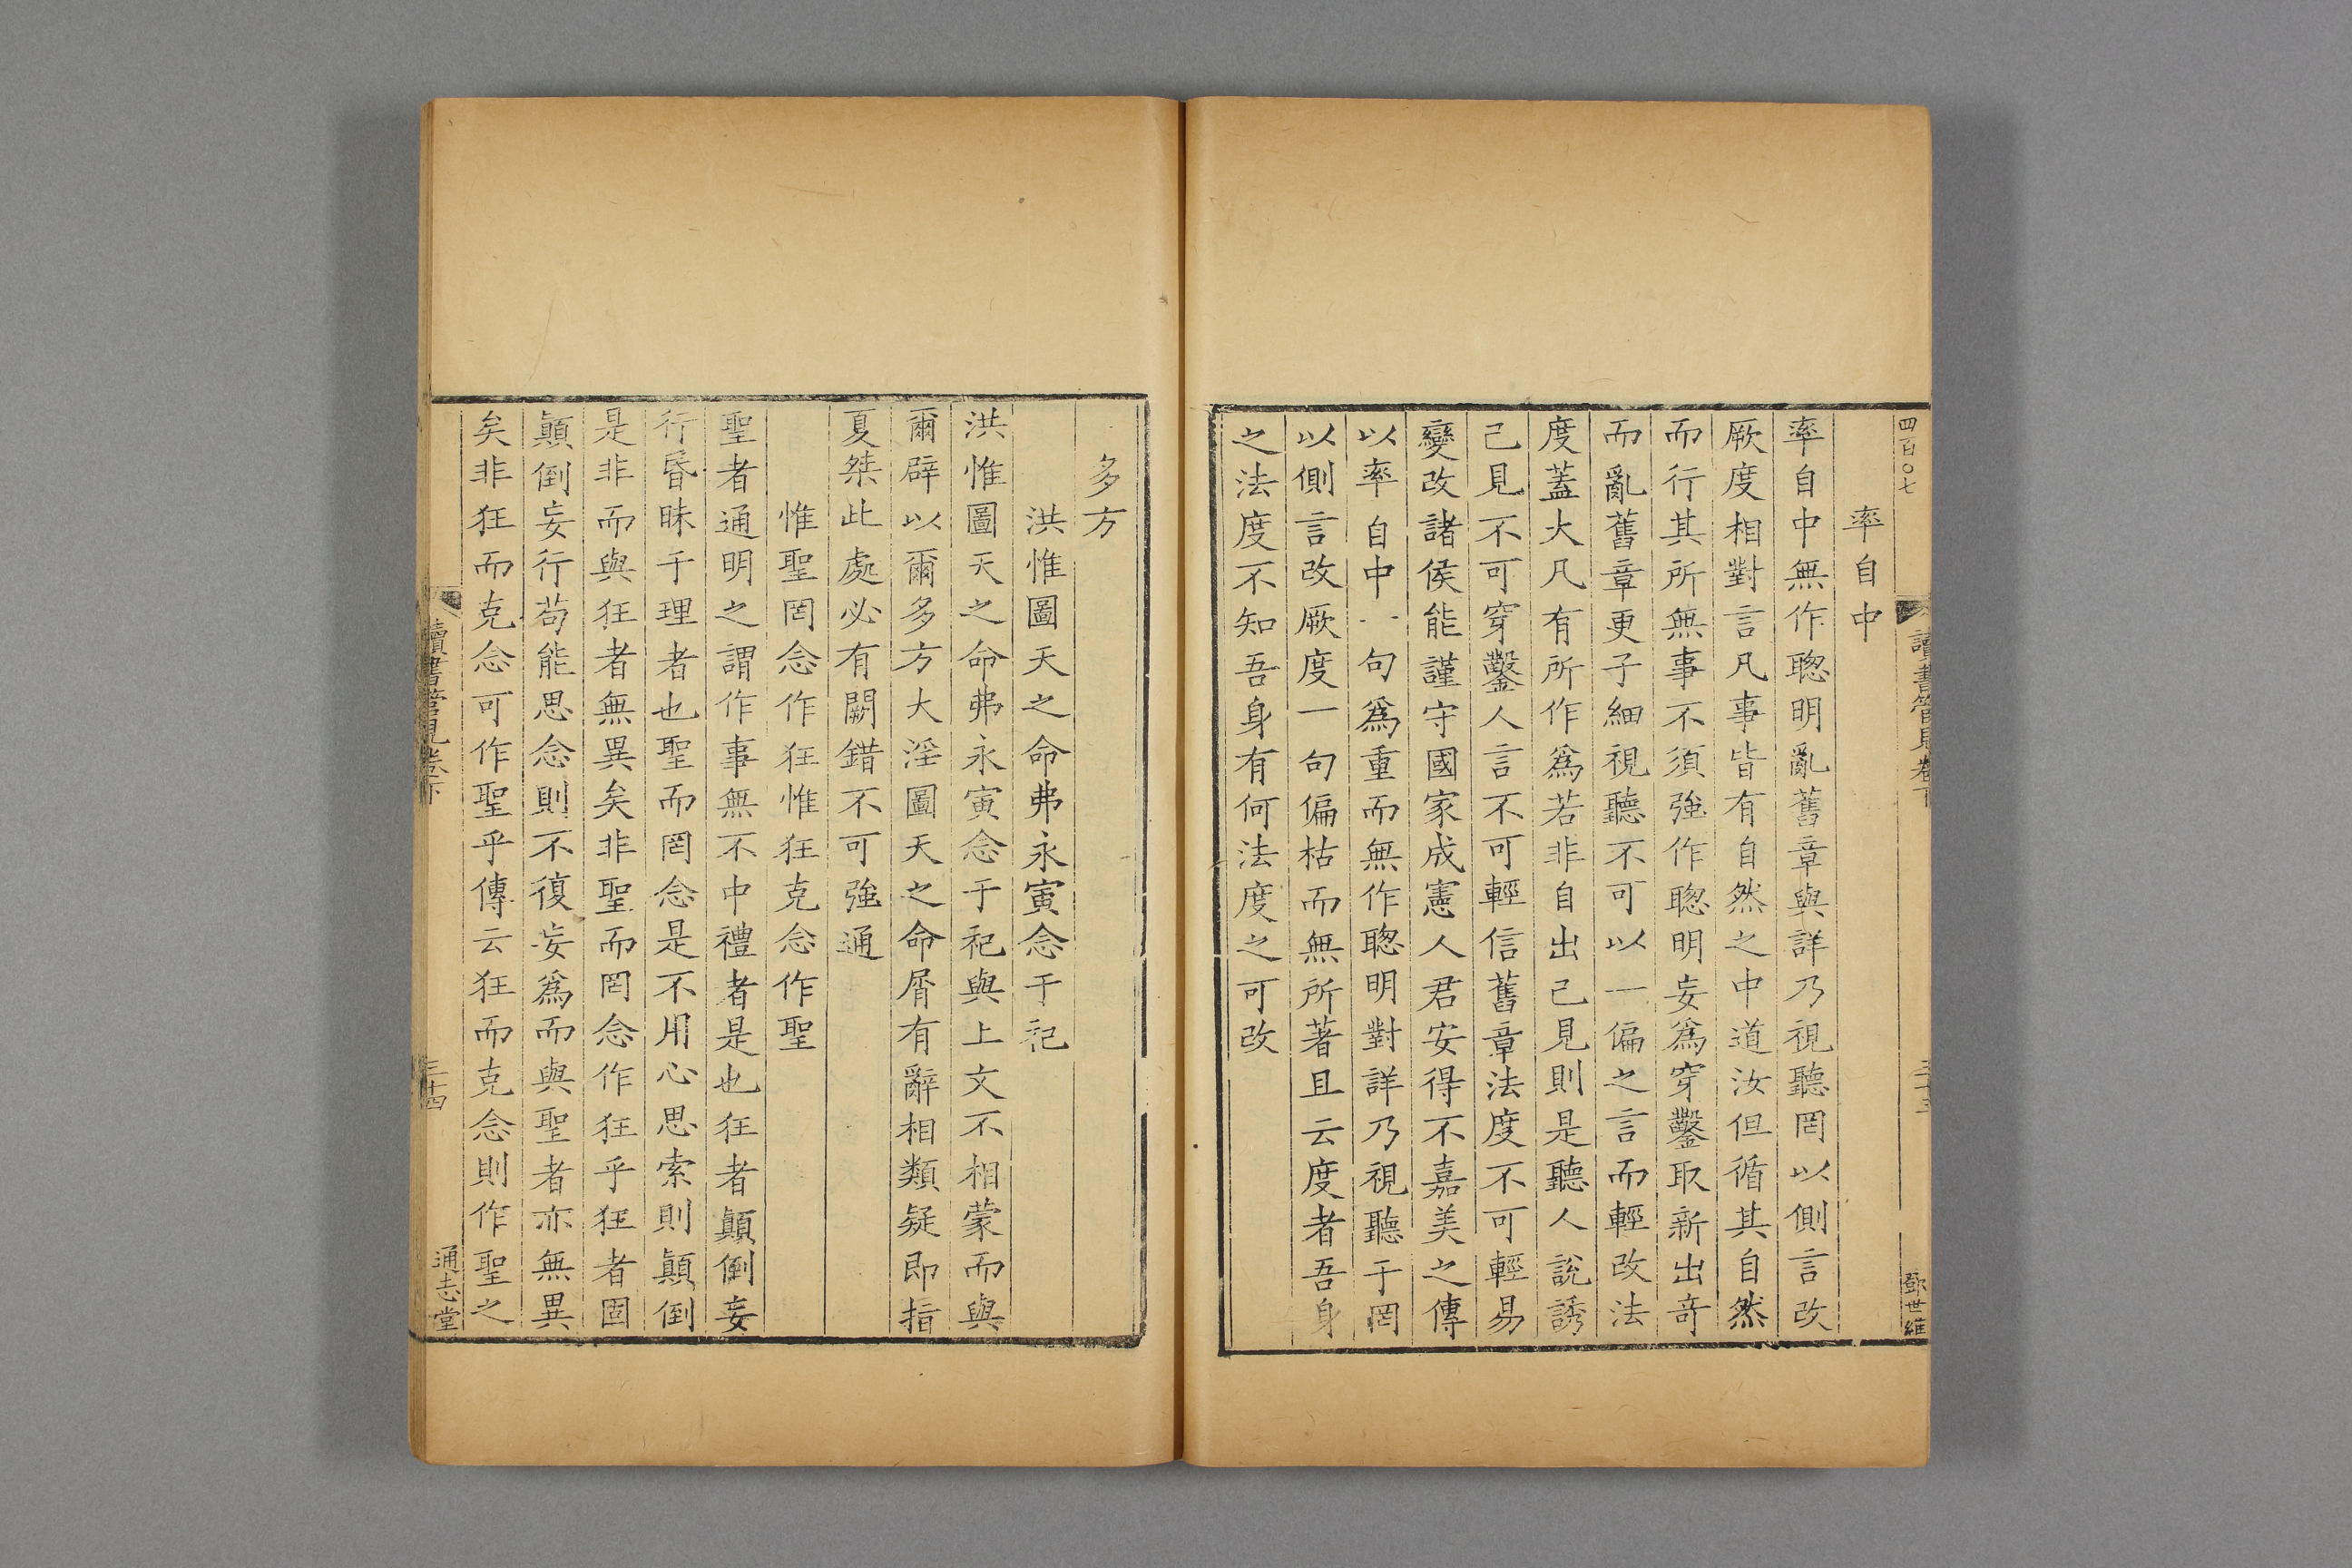 四百〇七
讀書管見卷下
三十三
鄧世維
率自中
率自中無作聰明亂舊章與詳乃視聽罔以側言改
厥度相對言凡事皆有自然之中中道汝但循其自然
而行其所無事不須強作聰明妄爲穿鑿取新出奇
而亂舊章更子細視聽不可以一偏之言而輕改法
度蓋大凡有所作爲若非自出己見則是聽人說誘
己見不可穿鑿人言不可輕信舊章法度不可輕易
變改諸侯能謹守國家成憲人君安得不嘉美之傳
以率自中一句爲重而無作聰明對詳乃視聽于罔
以側言改厥度一句偏枯而無所著且云度者吾身
之法度不知吾身有何法度之可改
多方
洪惟圖天之命弗永寅念于祀
洪惟圖天之命弗永寅念于祀與上文不相蒙而與
爾辟以爾多方大淫圖天之命屑有辭相類疑即指
夏桀此處必有闕錯不可強通
惟聖罔念作狂惟狂克念作聖
聖者通明之謂作事無不中禮者是也狂者顚倒妄
行昏昧于理者也聖而罔念是不用心思索則顚倒
是非而與狂者無異矣非聖而罔念作狂乎狂者固
顚倒妄行茍能思念則不復妄爲而與聖者亦無異
矣非狂而克念可作聖乎傳云狂而克念則作聖之
讀書管見卷下
三十四
通志堂